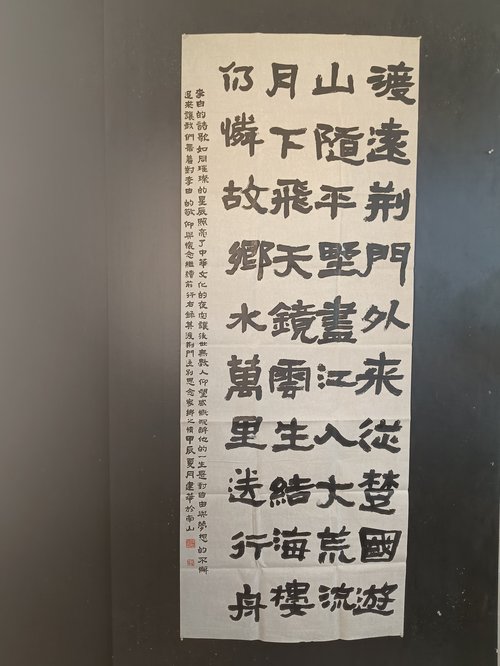 渡遠荆門外来從楚國遊
山隨平埜盡江入大荒流
月下飛天鏡雲生結海樓
仍憐故鄉水萬里送行舟
李白的詩歌如同璀璨的星辰照亮了中華文化的夜空讓後世無數人仰望感醉他的一生是對自由與夢想的不懈
追求讓我們帶着對李白的敬仰與懷念繼續前行右錄其渡荆門送別思念家鄉之情甲辰夏月建華於南山